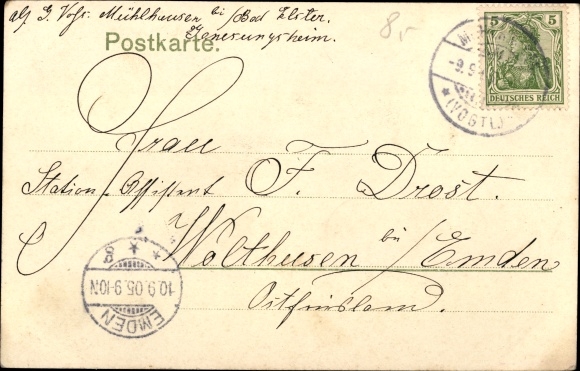 Mühlhausen bei Bad Elster.
Genesungsheim.
Postkarte.
8,-
5 5
DEUTSCHES REICH
-9.9
* (VOGTL)
Frau
F. Drost.
Station-Assistent
Wolthusen bei Emden
Ostfriesland.
* * 8
10.9.05.9-10N
EMDEN